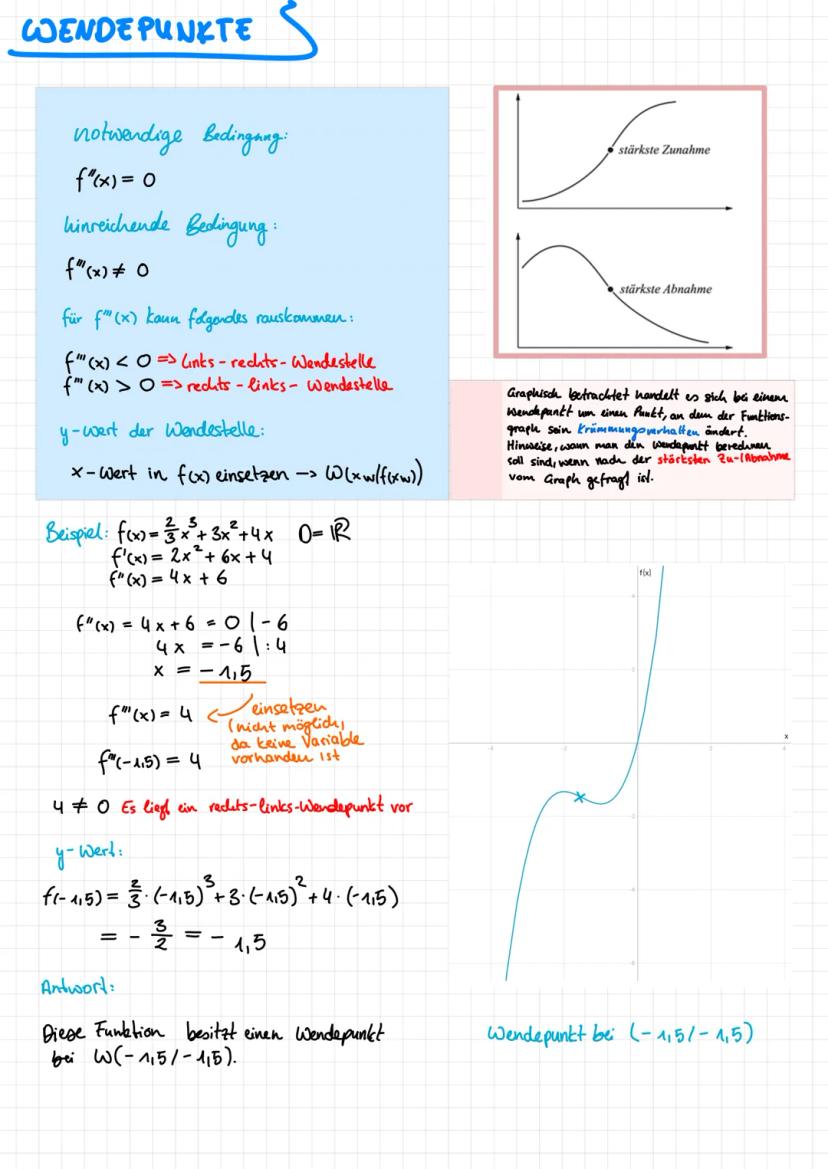 WENDEPUNKTE
notwendige Bedingung:
f"(x) = 0
hinreichende Bedingung:
f'''(x) ≠ 0
für f'''(x) kann folgendes rauskommen:
f'''(x) < 0 => links-rechts-Wendestelle
f'''(x) > 0 => rechts-links-Wendestelle
y-Wert der Wendestelle:
x-Wert in f(x) einsetzen -> W(xw/f(xw))
stärkste Zunahme
stärkste Abnahme
Graphisch betrachtet handelt es sich bei einem
Wendepunkt um einen Punkt, an dem der Funktions-
graph sein Krümmungsverhalten ändert.
Hinweise, wann man den Wendepunkt berechnen
soll sind, wenn nach der stärksten Zu-/Abnahme
vom Graph gefragt ist.
Beispiel: f(x) = 2/3 x³ + 3x² + 4x D = ℝ
f'(x) = 2x² + 6x + 4
f"(x) = 4x + 6
f"(x) = 4x + 6 = 0 | -6
4x = -6 | :4
x = -1,5
f'''(x) = 4 <- einsetzen
(nicht möglich,
da keine Variable
vorhanden ist
f'''(-1,5) = 4
4 ≠ 0 Es liegt ein rechts-links-Wendepunkt vor
y-Wert:
f(-1,5) = 2/3 · (-1,5)³ + 3 · (-1,5)² + 4 · (-1,5)
= - 3/2 = - 1,5
Antwort:
Diese Funktion besitzt einen Wendepunkt
bei W(-1,5/-1,5).
f(x)
4
2
x
-4 -2 2 4
-2
-4
-6
Wendepunkt bei (-1,5/-1,5)